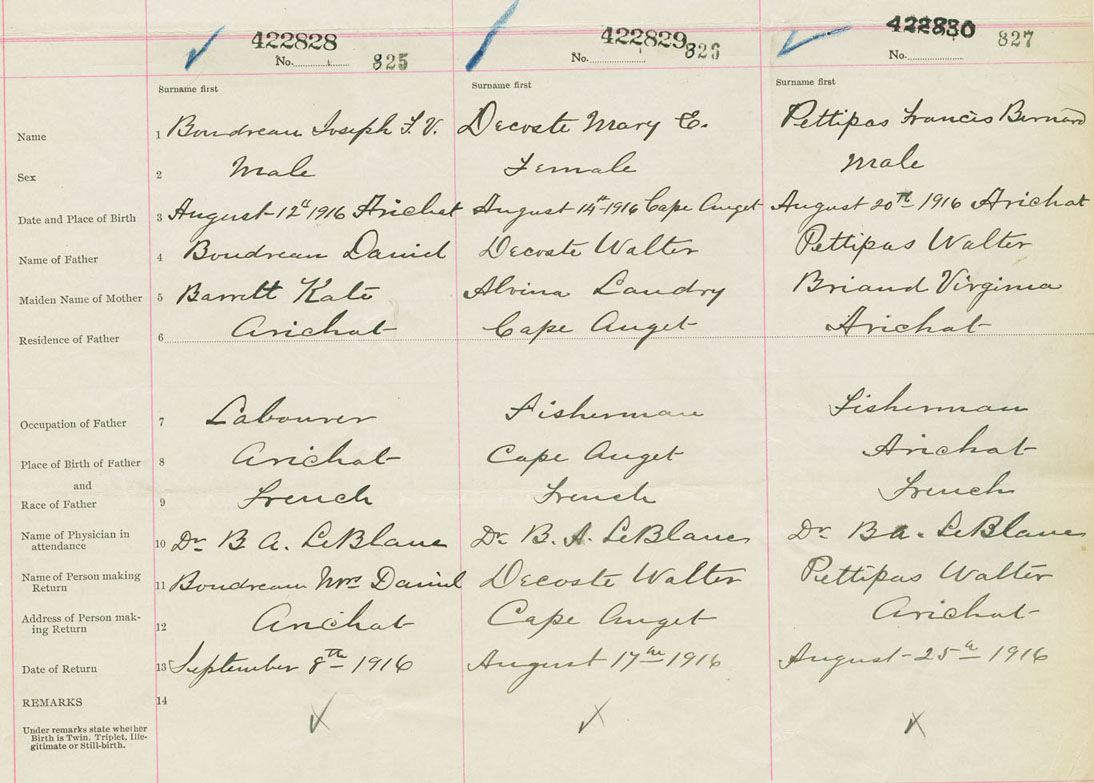 422828 422829 422830
No. 825 No. 826 No. 827
Surname first Surname first Surname first
Name 1 Boudreau Joseph F. V. Decoste Mary E. Pettipas Francis Bernard
Sex 2 Male Female Male
Date and Place of Birth 3 August 12th 1916 Arichat August 14th 1916 Cape Auget August 20th 1916 Arichat
Name of Father 4 Boudreau Daniel Decoste Walter Pettipas Walter
Maiden Name of Mother 5 Barrett Kate Alvina Landry Briand Virginia
Residence of Father 6 Arichat Cape Auget Arichat
Occupation of Father 7 Labourer Fisherman Fisherman
Place of Birth of Father 8 Arichat Cape Auget Arichat
and
Race of Father 9 French French French
Name of Physician in
attendance 10 Dr. B A. LeBlanc Dr. B. A. LeBlanc Dr. B A. LeBlanc
Name of Person making
Return 11 Boudreau Mrs Daniel Decoste Walter Pettipas Walter
Address of Person mak-
ing Return 12 Arichat Cape Auget Arichat
Date of Return 13 September 8th 1916 August 17th 1916 August 25th 1916
REMARKS 14
Under remarks state whether
Birth is Twin, Triplet, Ille-
gitimate or Still-birth.